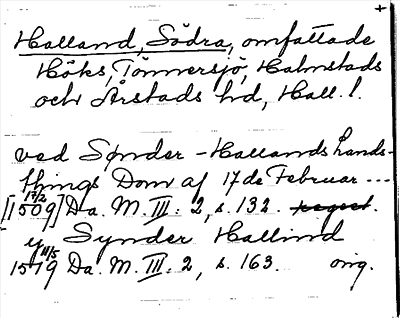 +
Halland, Södra, omfattade
Höks, Tönnersjö, Halmstads
och Årstads hd, Hall. l.
ved Sønder-Hallands Lands-
things Dom af 17de Februar ...
[1509 17/2] Da. M. III: 2, s. 132.
y Synder Hallind
1519 11/5 Da. M. III: 2, s. 163. orig.